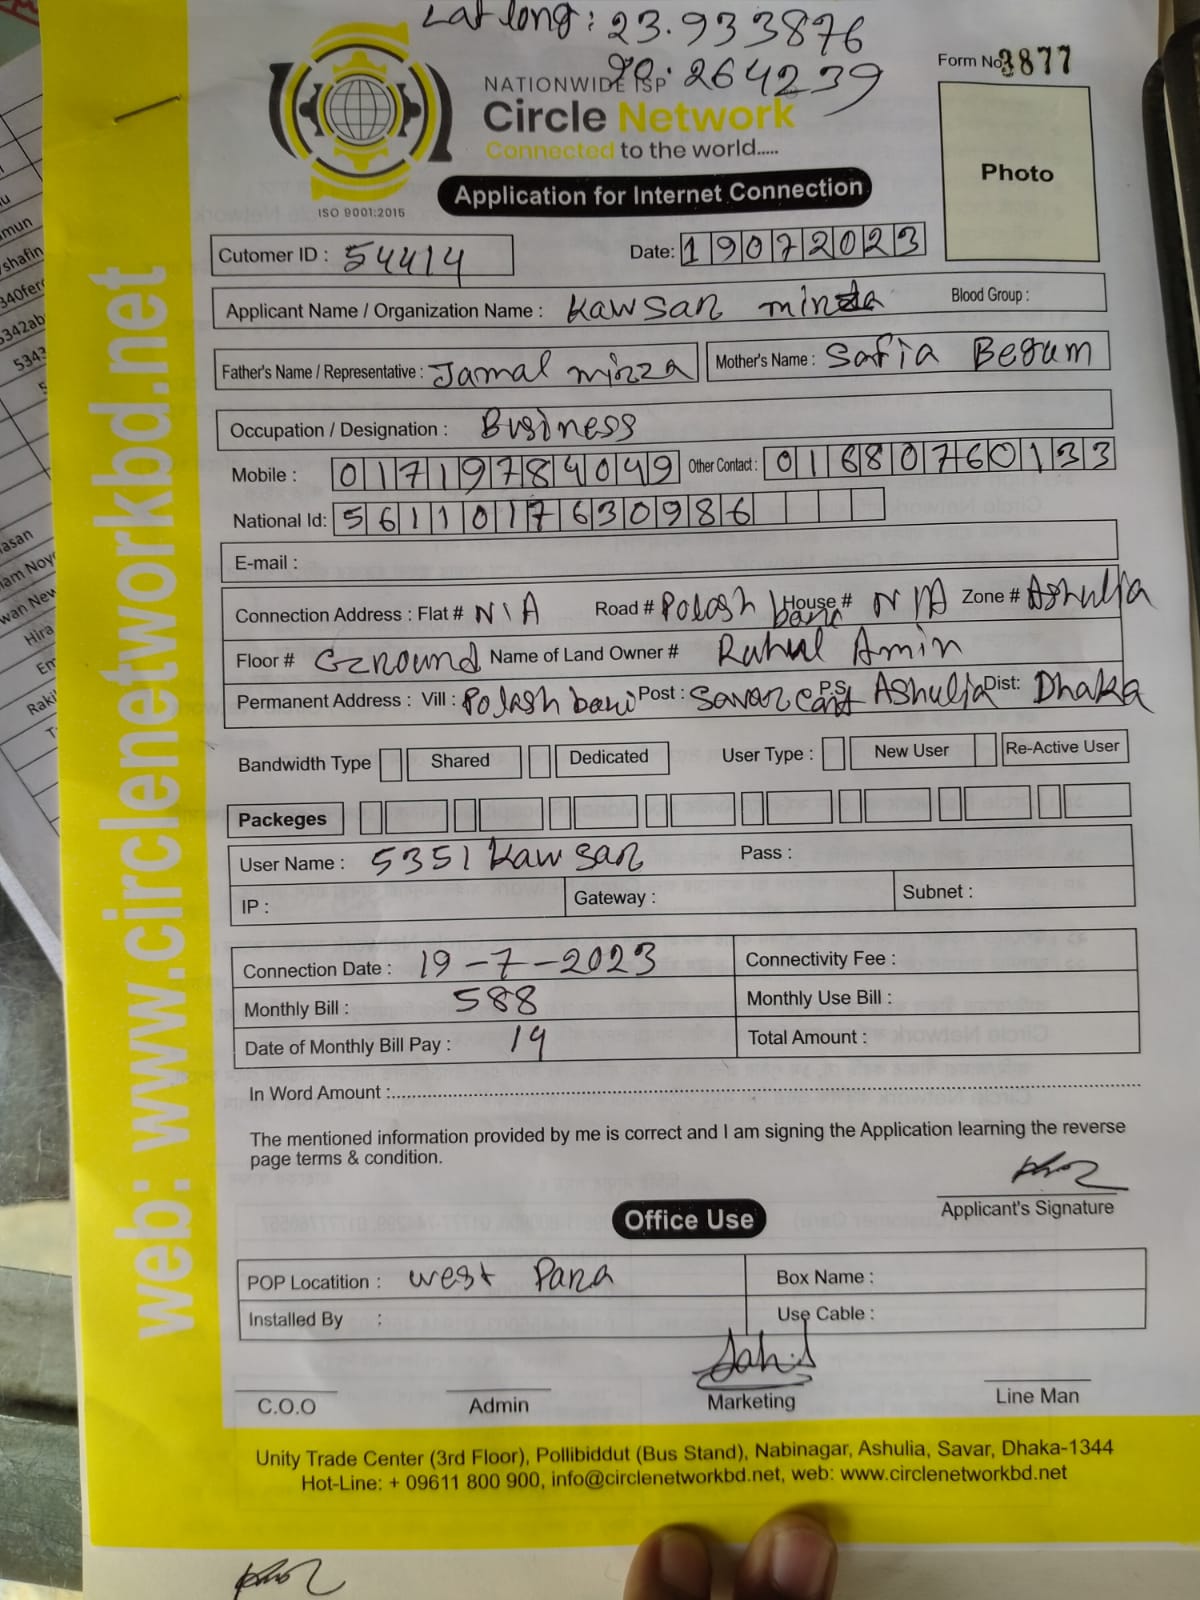 Lat long : 23.933876
90.264239
NATIONWIDE ISP
Circle Network
Connected to the world.....
ISO 9001:2015
Form No 3877
Photo
Application for Internet Connection
Cutomer ID : 54414
Date: 19072023
Applicant Name / Organization Name : Kawsar Blood Group :
Father's Name / Representative : Jamal mirza Mother's Name : Safia Begum
Occupation / Designation : Business
Mobile : 01719784049 Other Contact : 01680760133
National Id: 5611017630986
E-mail :
Connection Address : Flat # N/A Road # Polash bari House # N/A Zone # Ashulia
Floor # Ground Name of Land Owner # Ruhul Amin
Permanent Address : Vill : Polash bari Post : Savar cant P.S Ashulia Dist: Dhaka
Bandwidth Type Shared Dedicated User Type : New User Re-Active User
Packeges
User Name : 5351 Kawsar Pass :
IP : Gateway : Subnet :
Connection Date : 19-7-2023 Connectivity Fee :
Monthly Bill : 588 Monthly Use Bill :
Date of Monthly Bill Pay : 19 Total Amount :
In Word Amount :
The mentioned information provided by me is correct and I am signing the Application learning the reverse
page terms & condition.
Applicant's Signature
Office Use
POP Locatition : west Para Box Name :
Installed By : Use Cable :
C.O.O Admin Marketing Line Man
Unity Trade Center (3rd Floor), Pollibiddut (Bus Stand), Nabinagar, Ashulia, Savar, Dhaka-1344
Hot-Line: + 09611 800 900, info@circlenetworkbd.net, web: www.circlenetworkbd.net
web: www.circlenetworkbd.net